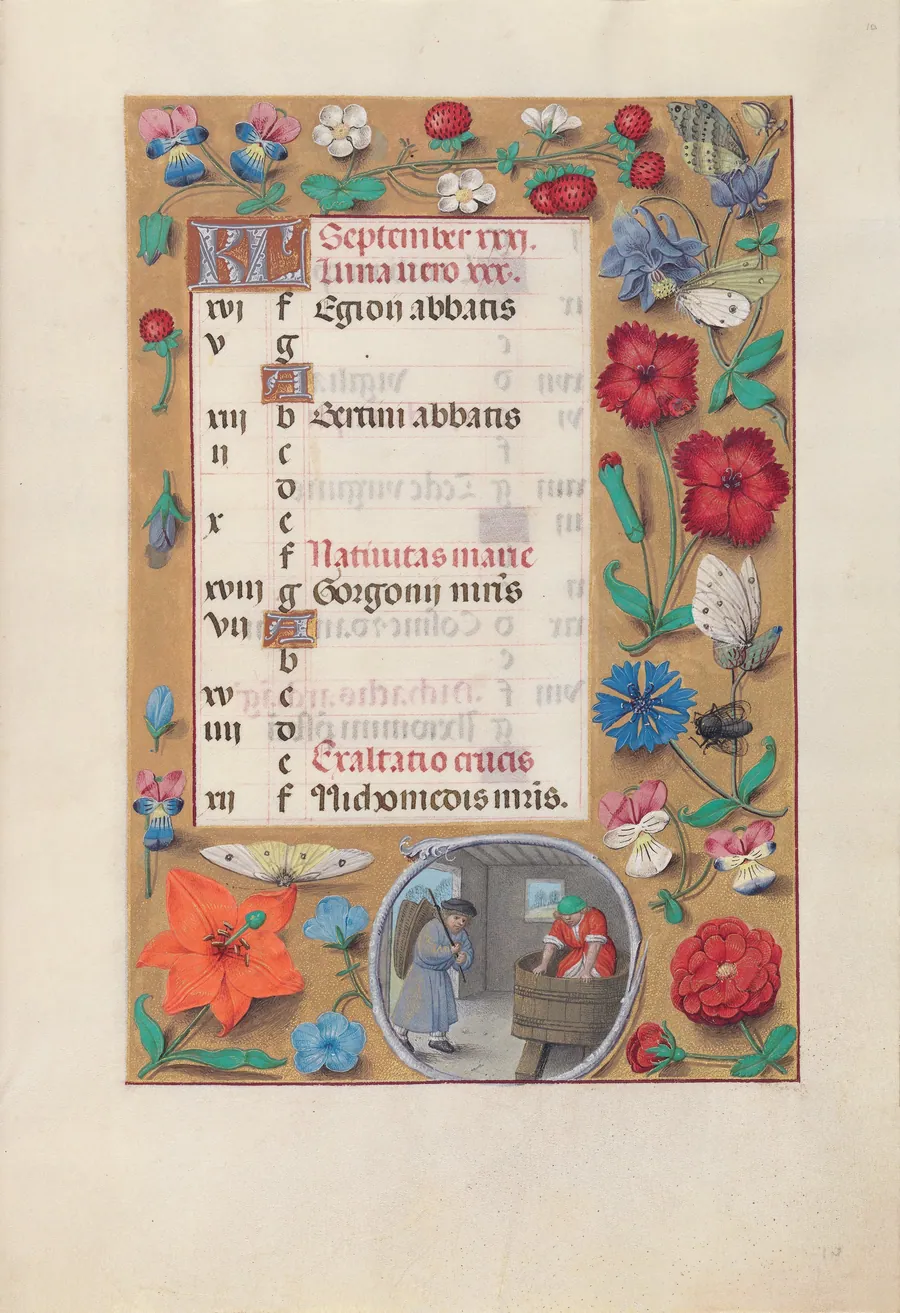 KL September xxx.
Luna uero xxx.
xvj f Egidij abbatis
v g
A
xiij b Bertini abbatis
ij c
d
x e
f Natiuitas marie
xviij g Gorgonij mris
vij A
b
xv c
iiij d
e Exaltatio crucis
xij f Nichomedis mris.